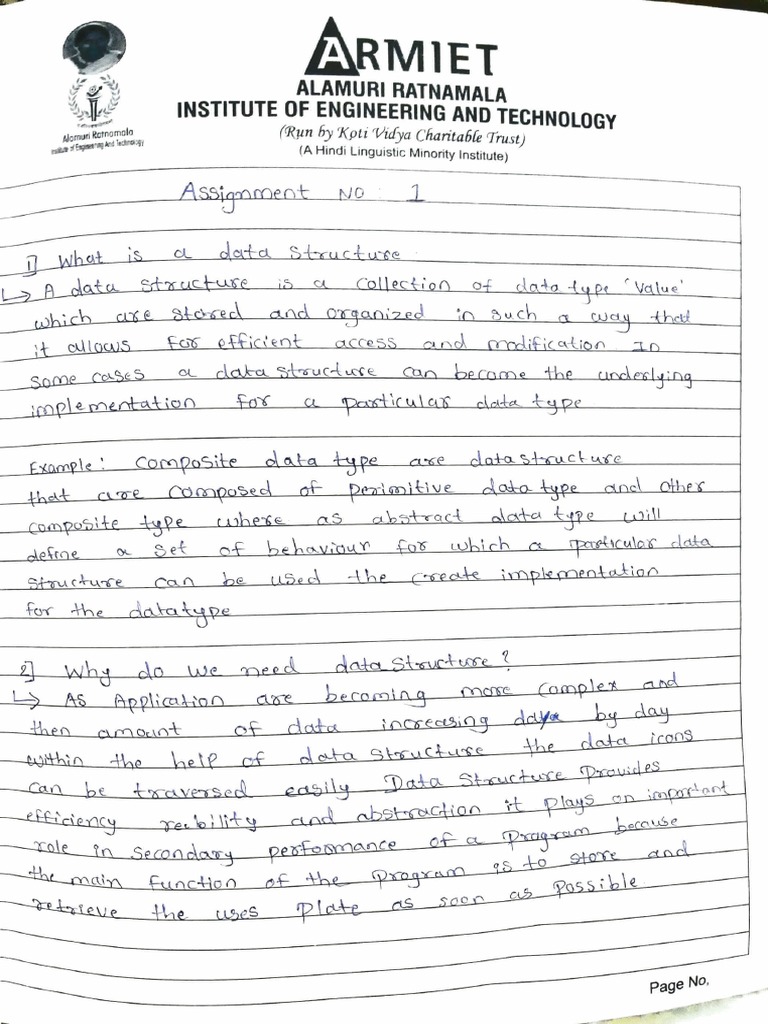 ARMIET
ALAMURI RATNAMALA
INSTITUTE OF ENGINEERING AND TECHNOLOGY
(Run by Koti Vidya Charitable Trust)
(A Hindi Linguistic Minority Institute)
Alamuri Ratnamala
Institute of Engineering And Technology
Assignment NO : 1
1] What is a data structure
↳ A data structure is a collection of data type 'value'
which are stored and organized in such a way that
it allows for efficient access and modification In
some cases a data structure can become the underlying
implementation for a particular data type
Example : Composite data type are data structure
that are composed of perimitive data type and other
composite type where as abstract data type will
define a set of behaviour for which a particular data
structure can be used the create implementation
for the datatype
2] Why do we need data structure ?
↳ As Application are becoming more complex and
then amount of data increasing day by day
within the help of data structure the data icons
can be traversed easily Data Structure Provides
efficiency reebility and abstraction it plays on important
role in secondary performance of a program because
the main function of the program is to store and
retrieve the uses plate as soon as possible
Page No.